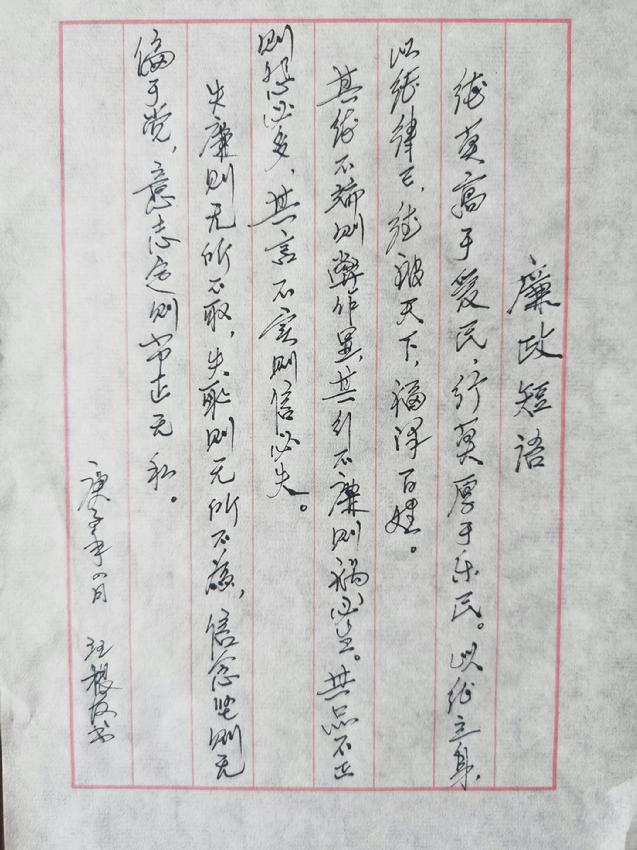 廉政短语
德莫高于爱民,行莫厚于乐民。以德立身,
以德律己,德被天下,福泽百姓。
其德不端则弊作显,其行不廉则祸必生。其品不正
则怨必多,其言不实则信必失。
失廉则无所不取,失耻则无所不为,信念坚则无
偏于党,意志定则常正无私。
庚子年四月 汪根发书